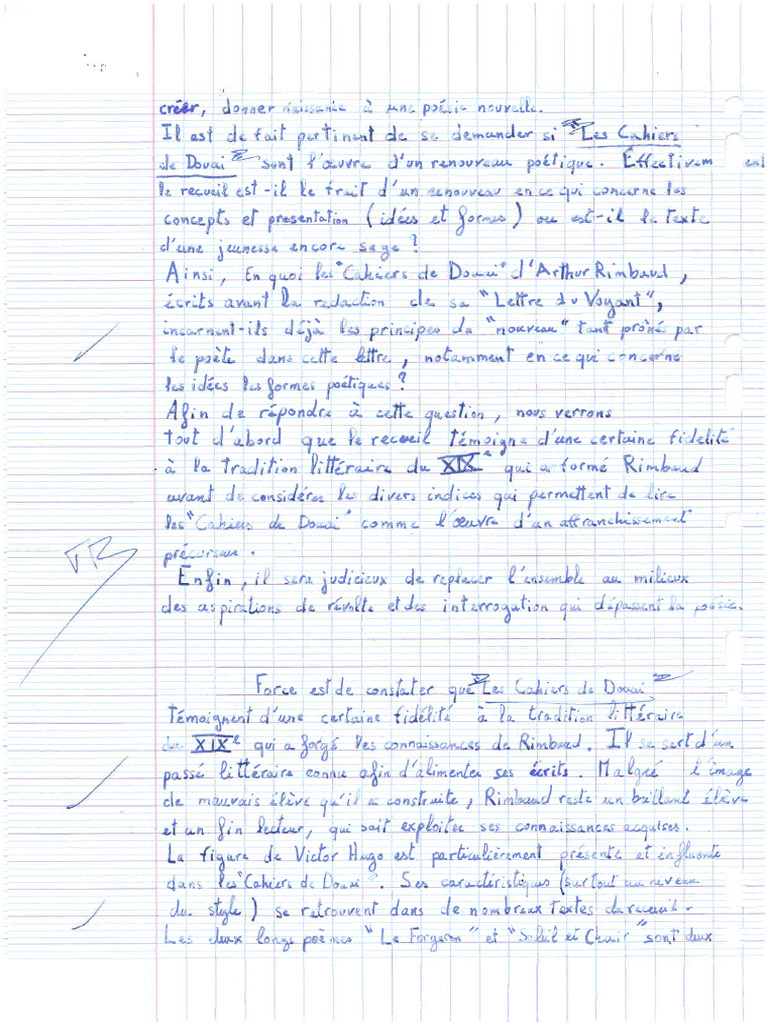 créer, donner naissance à une poésie nouvelle.
Il est de fait pertinent de se demander si "Les Cahiers
de Douai" sont l'œuvre d'un renouveau poétique. Effectivement
le recueil est-il le frait d'un renouveau en ce qui concerne les
concepts et presentation (idées et formes) ou est-il le texte
d'une jeunesse encore sage ?
Ainsi, En quoi les "Cahiers de Douai" d'Arthur Rimbaud,
écrits avant la redaction de sa "Lettre du Voyant",
incarnent-ils déjà les principes du "nouveau" tant prônés par
le poète dans cette lettre, notamment en ce qui concerne
les idées les formes poétiques ?
Afin de répondre à cette question, nous verrons
tout d'abord que le recueil témoigne d'une certaine fidelité
à la tradition littéraire du XIXe qui a formé Rimbaud
avant de considérer les divers indices qui permettent de lire
les "Cahiers de Douai" comme l'œuvre d'un affranchissement
précurseur.
TB
Enfin, il sera judicieux de replacer l'ensemble au milieux
des aspirations de révolte et des interrogation qui dépassent la poésie.
Force est de constater que "Les Cahiers de Douai"
témoignent d'une certaine fidélité à la tradition littéraire
du XIXe qui a forgé les connaissances de Rimbaud. Il se sert d'un
passé littéraire connu afin d'alimenter ses écrits. Malgré l'image
de mauvais élève qu'il a construite, Rimbaud reste un brillant élève
et un fin lecteur, qui sait exploiter ses connaissances acquises.
La figure de Victor Hugo est particulièrement présente et influente
dans les "Cahiers de Douai". Ses caractéristiques (surtout au niveau
du style) se retrouvent dans de nombreux textes du receuil.
Les deux longs poèmes "Le Forgeron" et "Soleil et Chair" sont deux